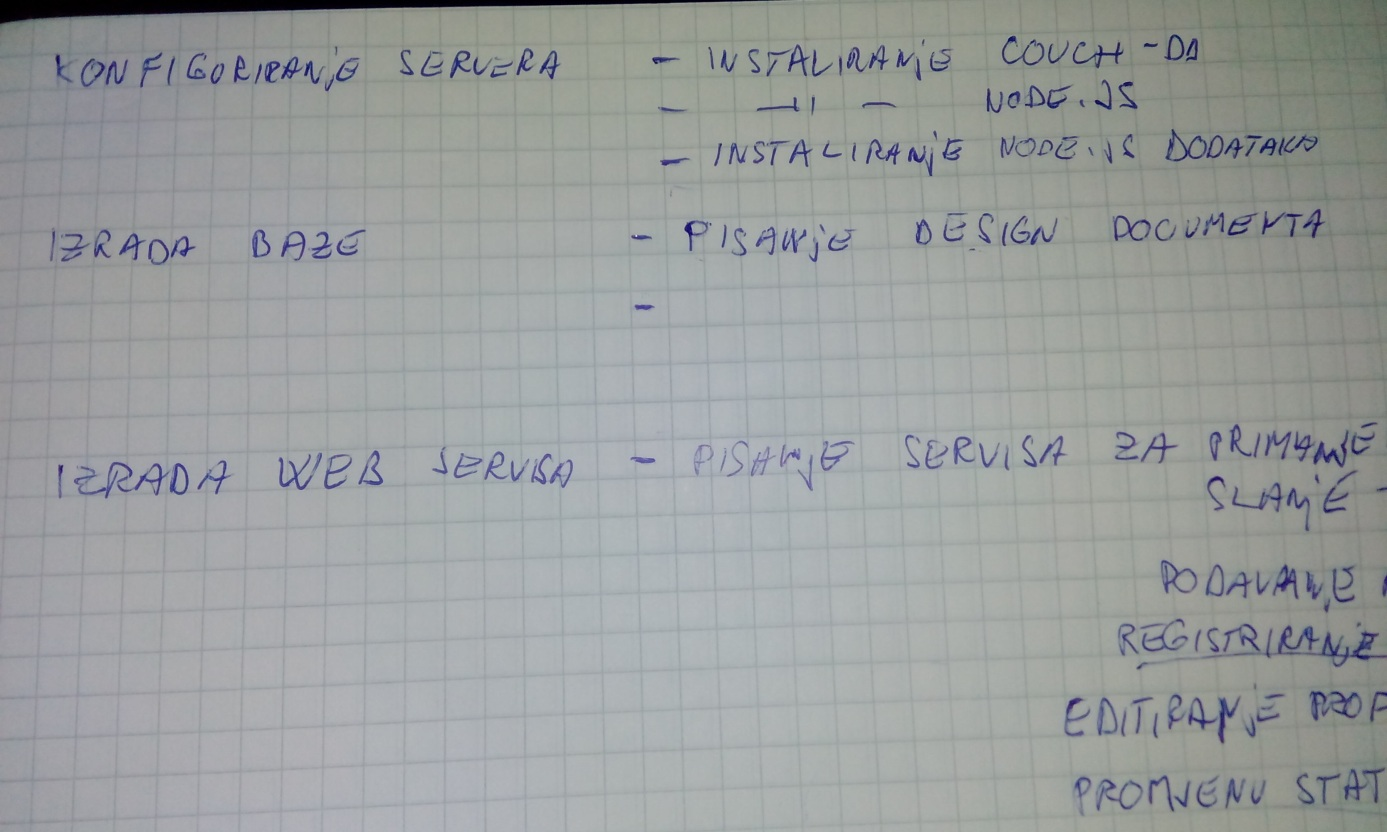 KONFIGORIRANjE SERVERA - INSTALIRANjE COUCH-DA
- —||— NODE.JS
- INSTALIRANjE NODE.JS DODATAKA
IZRADA BAZE - PISANjE DESIGN DOCUMENTA
-
IZRADA WEB SERVISA - PISANjE SERVISA ZA PRIMANJE
SLANjE -
DODAVANjE
REGISTRIRANjE
EDITIRANjE PROF
PROMJENU STAT